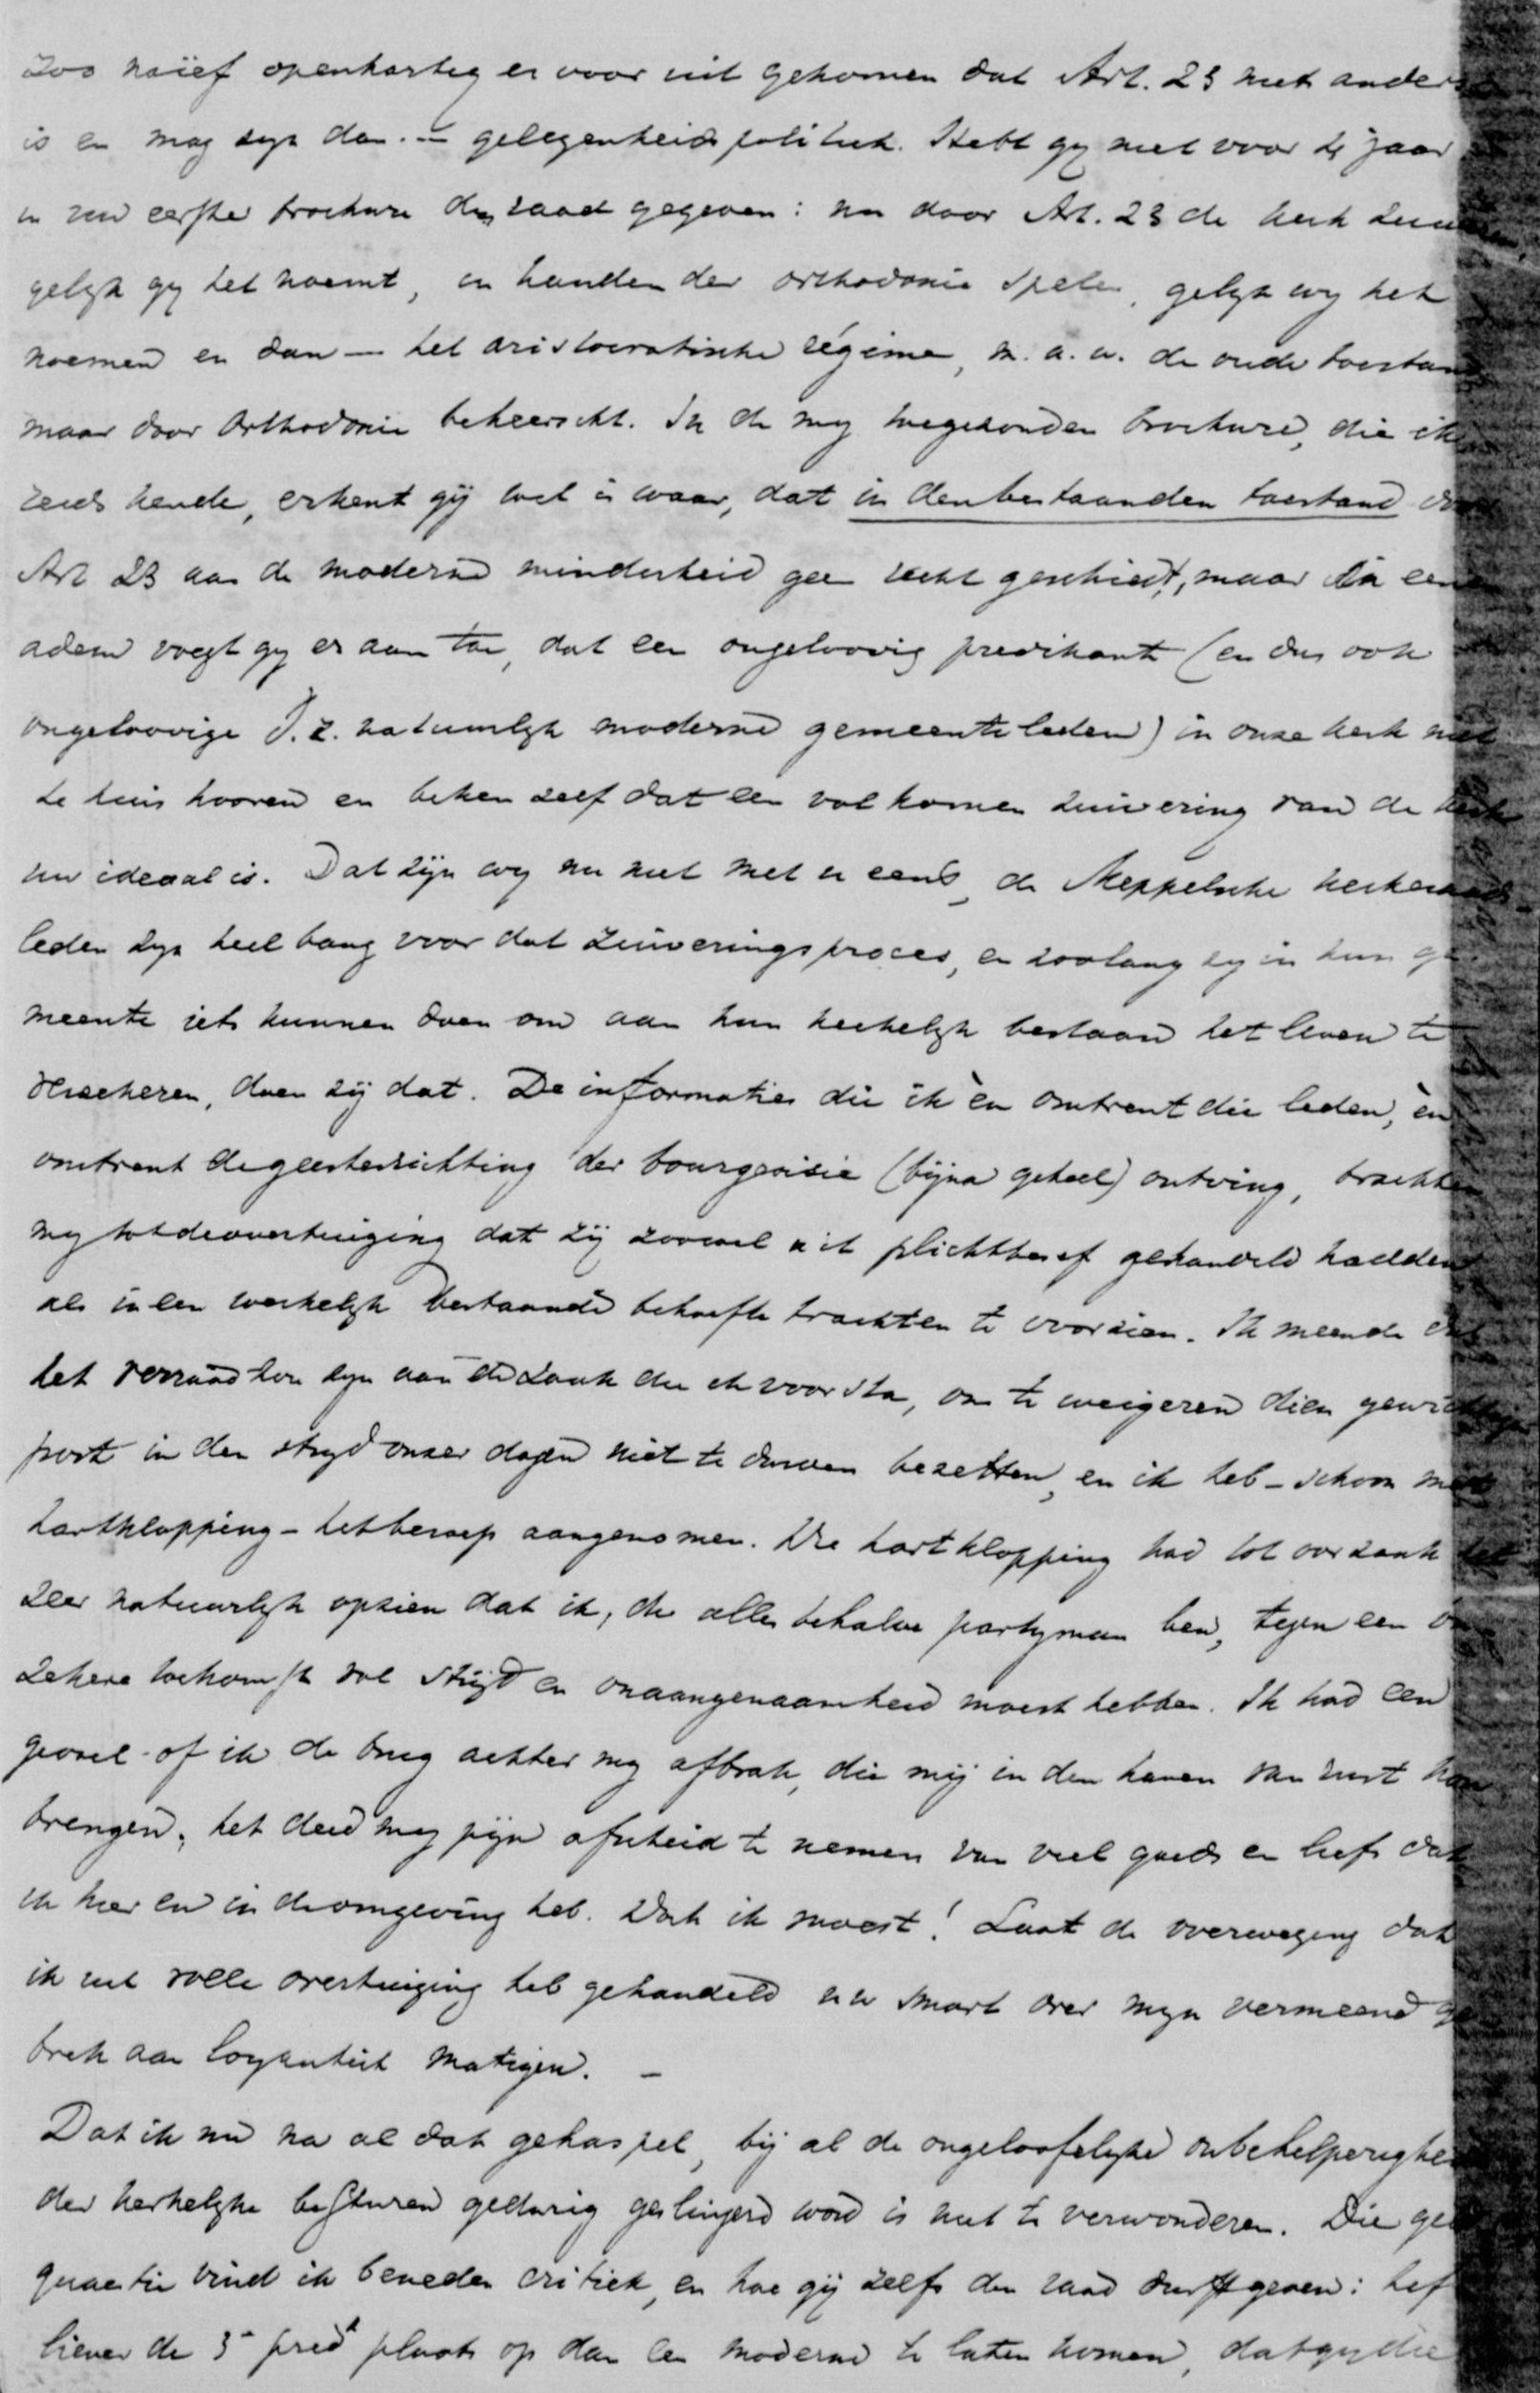 zoo naïef openhartig er voor uit gekomen dat Art. 23 niet anders
is en mag zijn dan. — gelegenheidspolitiek. Hebt gy niet voor jaar
in uw eerste brochure den raad gegeven: nu door Art. 23 de kerk
gelyk gy het noemt, in handen der orthodoxie spelen, gelyk wy het
noemen en dan — het aristocratische régime, m. a. w. de oude toestand
maar door Orthodoxie beheerscht. In de my toegezonden brochure, die ik
reeds kende, erkent gij wel is waar, dat in den bestaanden toestand door
Art 23 aan de moderne minderheid geen recht geschiedt, maar in een
adem voegt gy er aan toe, dat een ongeloovig predikant (en dus ook
ongeloovige d. z. natuurlyk moderne gemeenteleden) in onze kerk niet
te huis hooren en beken zelf dat een volkomen zuivering van de kerk
uw ideaal is. Dat zijn wy nu niet met u eens, de Meppelsche kerkeraads
leden zyn heel bang voor dat zuiveringsproces, en zoolang zy in hun ge-
meente iets kunnen doen om aan hun kerkelyk bestaan het leven te
verzekeren, doen zij dat. De informaties die ik èn omtrent die leden, èn
omtrent de geestesrichting der bourgeoisie (bijna geheel) ontving, brachten
my tot de overtuiging dat zij zoowel uit plichtbesef gehandeld hadden
als in een werkelyk bestaande behoefte trachten te voorzien. Ik meende dat
het verraad zou zyn aan de zaak die ik voorsta, om te weigeren dien gewichtigen
post in den stryd onzer dagen niet te durven bezetten, en ik heb – schoon met
hartklopping – het beroep aangenomen. Die hartklopping had tot oorzaak het
zeer natuurlyk opzien dat ik, die alles behalve partyman ben, tegen een on
zekere toekomst vol stryd en onaangenaamheid moest hebben. Ik had een
gevoel of ik de brug achter my afbrak, die mij in den haven van rust kon
brengen; het deed my pijn afscheid te nemen van veel goeds en liefs dat
ik hier en in de omgeving heb. Doch ik moest! Laat de overweging dat
ik uit volle overtuiging heb gehandeld uw smart over myn vermeend ge
brek aan loyauteit matigen. —
Dat ik nu na al dat gehaspel, bij al de ongelooflyke onbeholpenigheid
der kerkelyke besturen gedurig geslingerd word is niet te verwonderen. Die
quaestie vind ik beneden critiek, en hoe gij zelfs den raad durft geven: hef
liever de 3e predts plaats op dan een moderne te laten komen, dat gy die